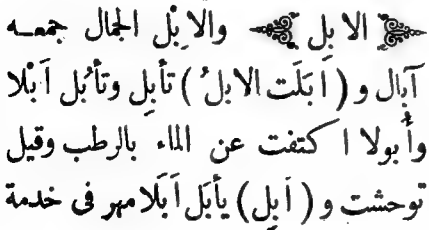 الابِل والابْل الجمال جمعه
آبال و ( اَبَلَت الابلُ ) تأبِل وتأبُل اَبْلا
وأُبولا اكتفت عن الماء بالرطب وقيل
توحشت و ( اَبِل ) يأبَل اَبَلا مهر فى خدمة